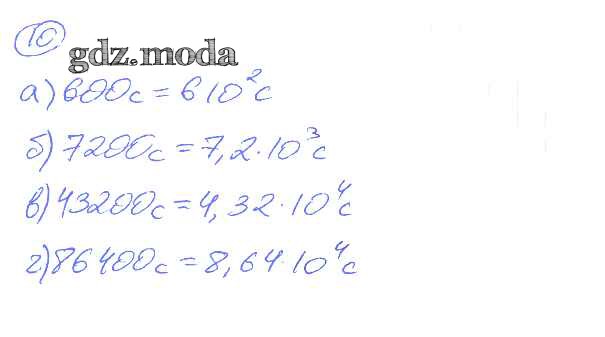 10
gdz.moda
а) 600с = 6 10²с
б) 7200с = 7,2·10³с
в) 43200с = 4,32·10⁴с
г) 86400с = 8,64·10⁴с